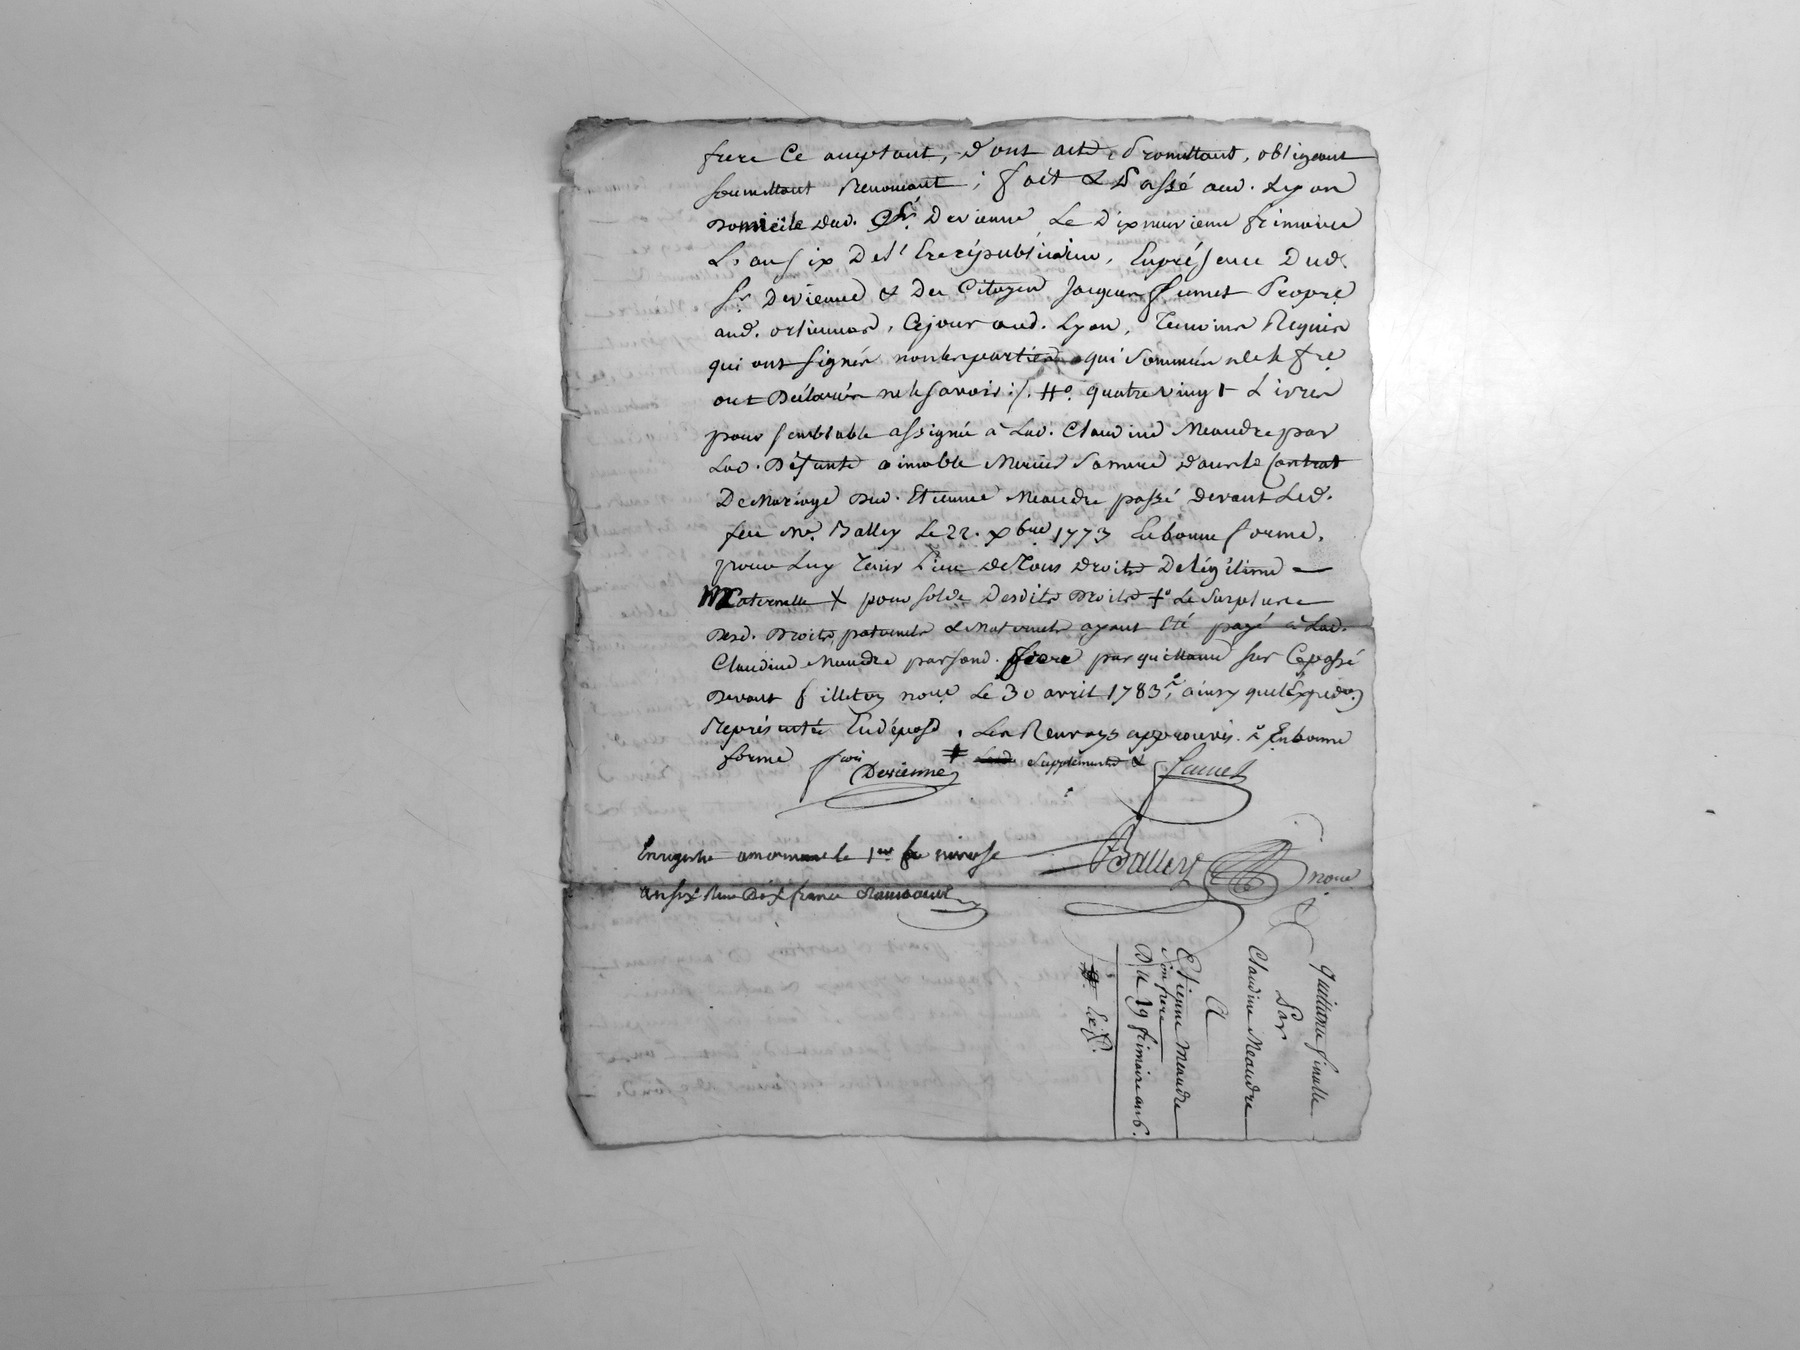 frere Ce acceptant, dont acte, Promettant, obligeant
soumettant Renoncant ; fait & Passé aud. Lyon
Domicile dud. Sr. Devienne Le Dixneuvieme frimaire
L'an six De l'Ere républicaine, En présence Dud.
Sr. Devienne & Du Citoyen Jacques fumet Propre
aud. , Cejour aud. Lyon, Temoins Requis
qui ont signés non les parties qui Sommées de le fre
ont Déclarées ne le savoir ./. #o. quatre vingt Livres
pour semblable assignée à Lad. Claudine Meaudre par
Lad. Défunte aimable Mercier Sa mere dans le Contrat
De Mariage dud. Etienne Meaudre passé devant Led.
feu Me. Balley Le 22. Xbre 1773 En bonne forme.
pour Luy Tenir Lieu De Tous Droits De légitime
Maternelle X pour solde Desdits Droits +o Le Surplus
Desd. Droits paternels & Maternels ayant été payé à Lad.
Claudine Meaudre par sond. frere par quittance sur Ce passé
Devant fillton nore Le 30 avril 1783, ainsy quel'Expedon
Représentée En dépose . Les Renvoys approuvés. En bonne
forme # Supplements &
fois Devienne fumet
Balley nore
Enregistré a le 1er nivose
an six Recu Dix francs
quittance finalle
Par
Claudine Meaudre
A
Etienne Meaudre
Son frere
Du 19 frimaire an 6.